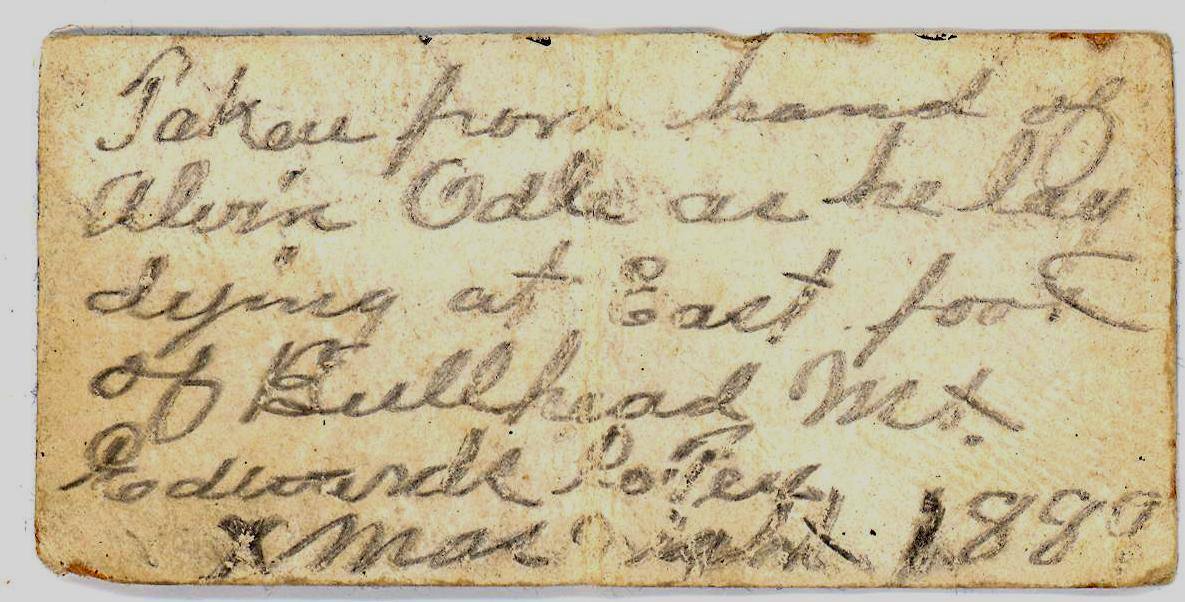 Taken from hand of
Alvin Odle as he lay
dying at East foot
of Bullhead Mt.
Edwards Co Tex,
Xmas night 1889